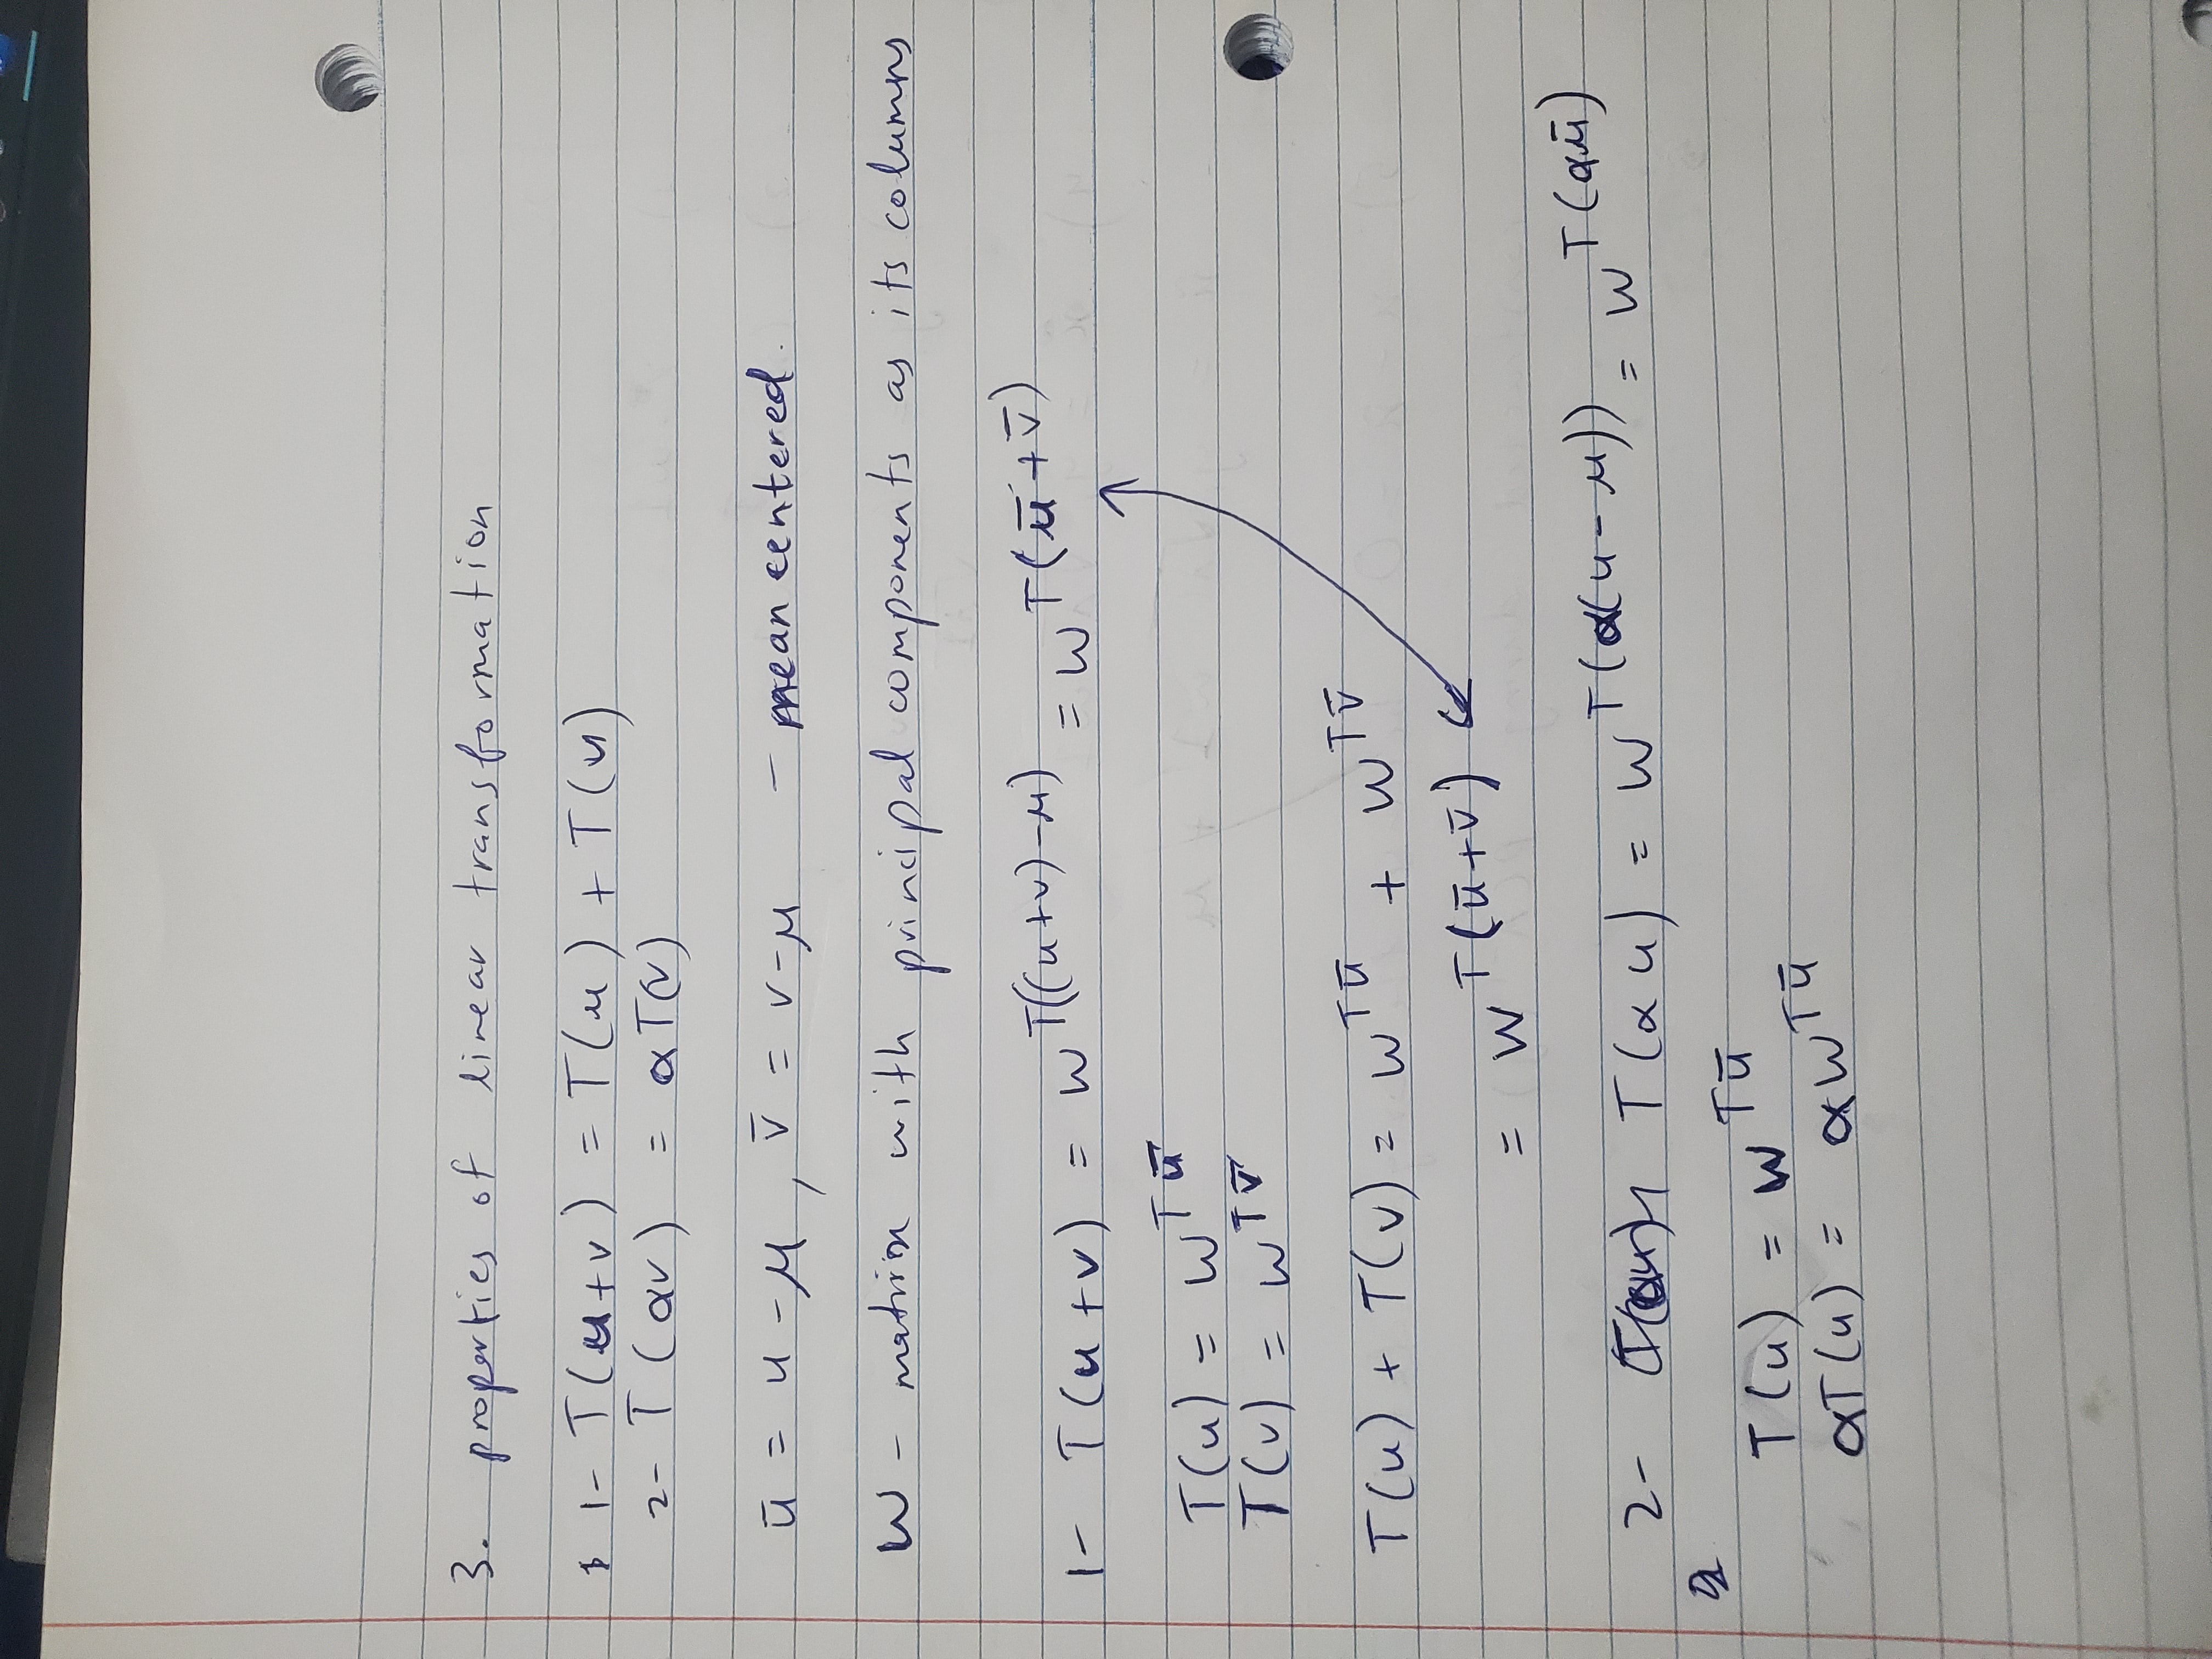 3. properties of linear transformation
1- T(u+v) = T(u) + T(v)
2- T(αv) = αT(v)
ū = u-μ, v̄ = v-μ - mean centered.
W - matrix with principal components as its columns
1- T(u+v) = W^T((u+v)-μ) = W^T(ū+v̄)
T(u) = W^Tū
T(v) = W^Tv̄
T(u) + T(v) = W^Tū + W^Tv̄
= W^T(ū+v̄)
2- T(αu) = W^T(α(u-μ)) = W^T(αū)
T(u) = W^Tū
αT(u) = αW^Tū